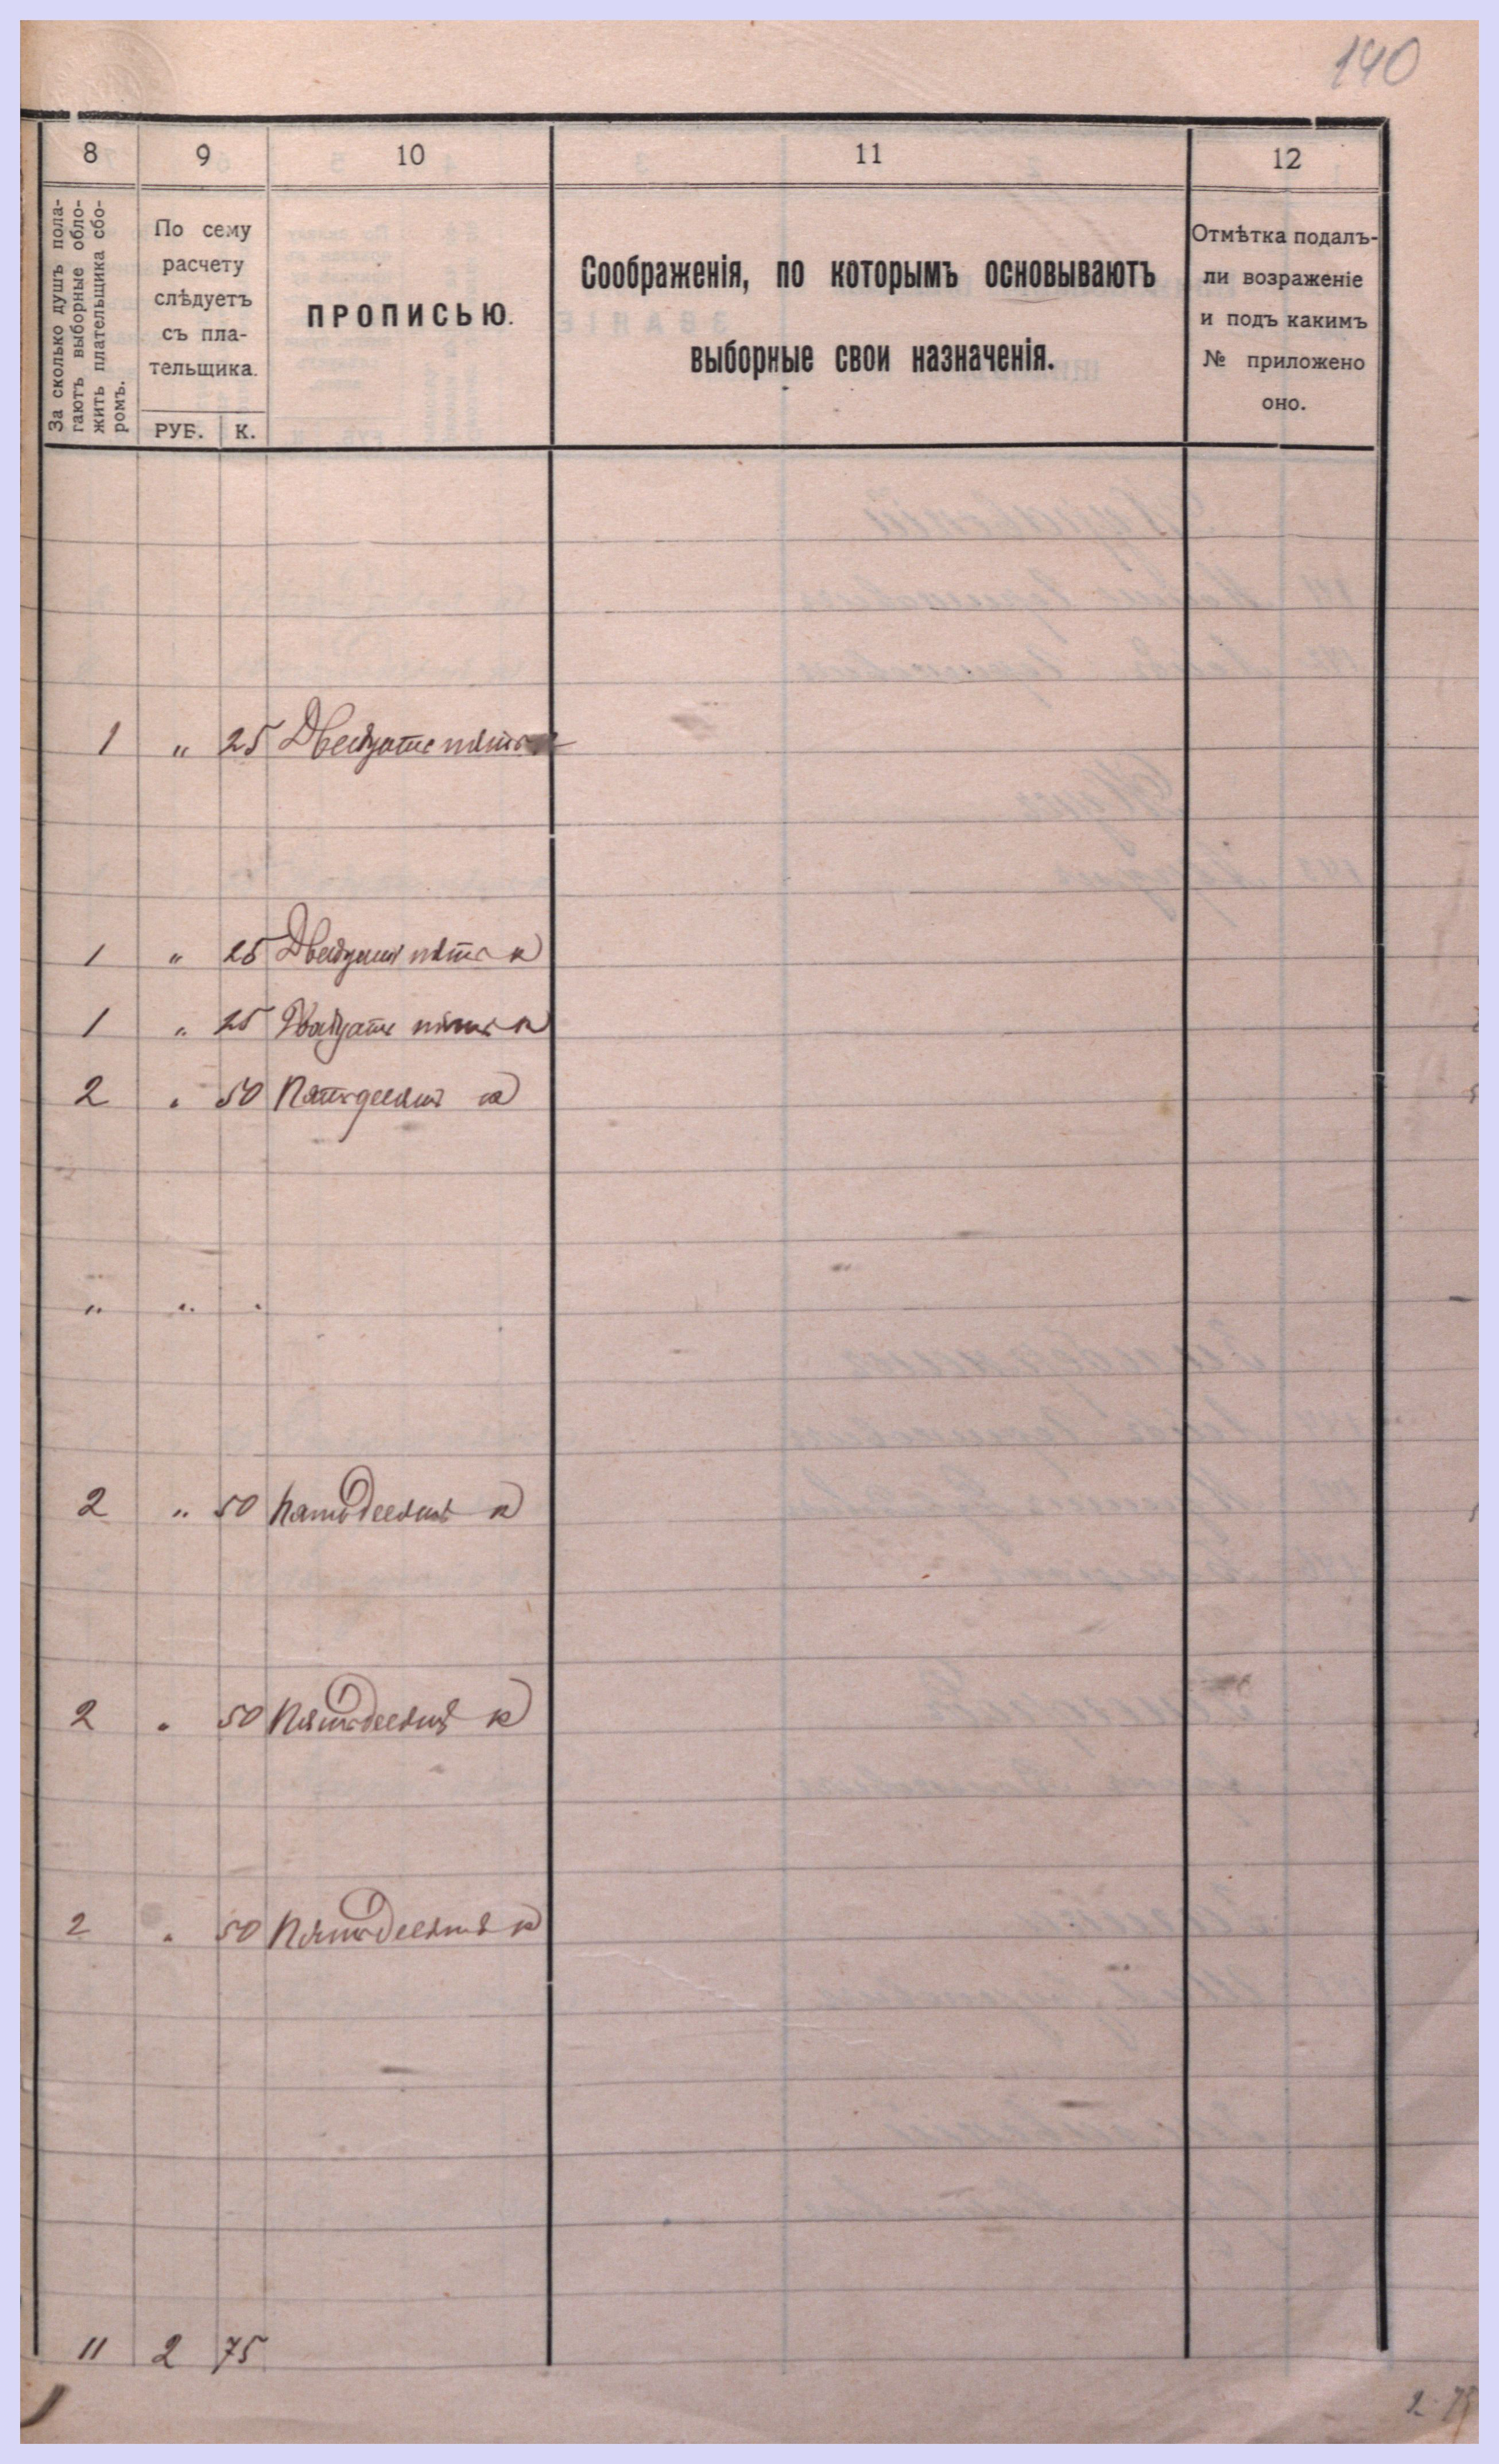 140
8 9 10 11 12
За сколько душъ пола-
гаютъ выборные обло-
жить плательщика сбо-
ромъ.
По сему
расчету
слѣдуетъ
съ пла-
тельщика.
РУБ. К.
ПРОПИСЬЮ.
Соображенія, по которымъ основываютъ
выборные свои назначенія.
Отмѣтка подалъ-
ли возраженіе
и подъ какимъ
№ приложено
оно.
1 " 25 Двадцать пять
1 " 25 Двадцать пять к
1 " 25 Двадцать пять к
2 " 50 Пятьдесятъ к
" " "
2 " 50 Пятьдесятъ к
2 " 50 Пятьдесятъ к
2 " 50 Пятьдесятъ к
11 2 75
2 75